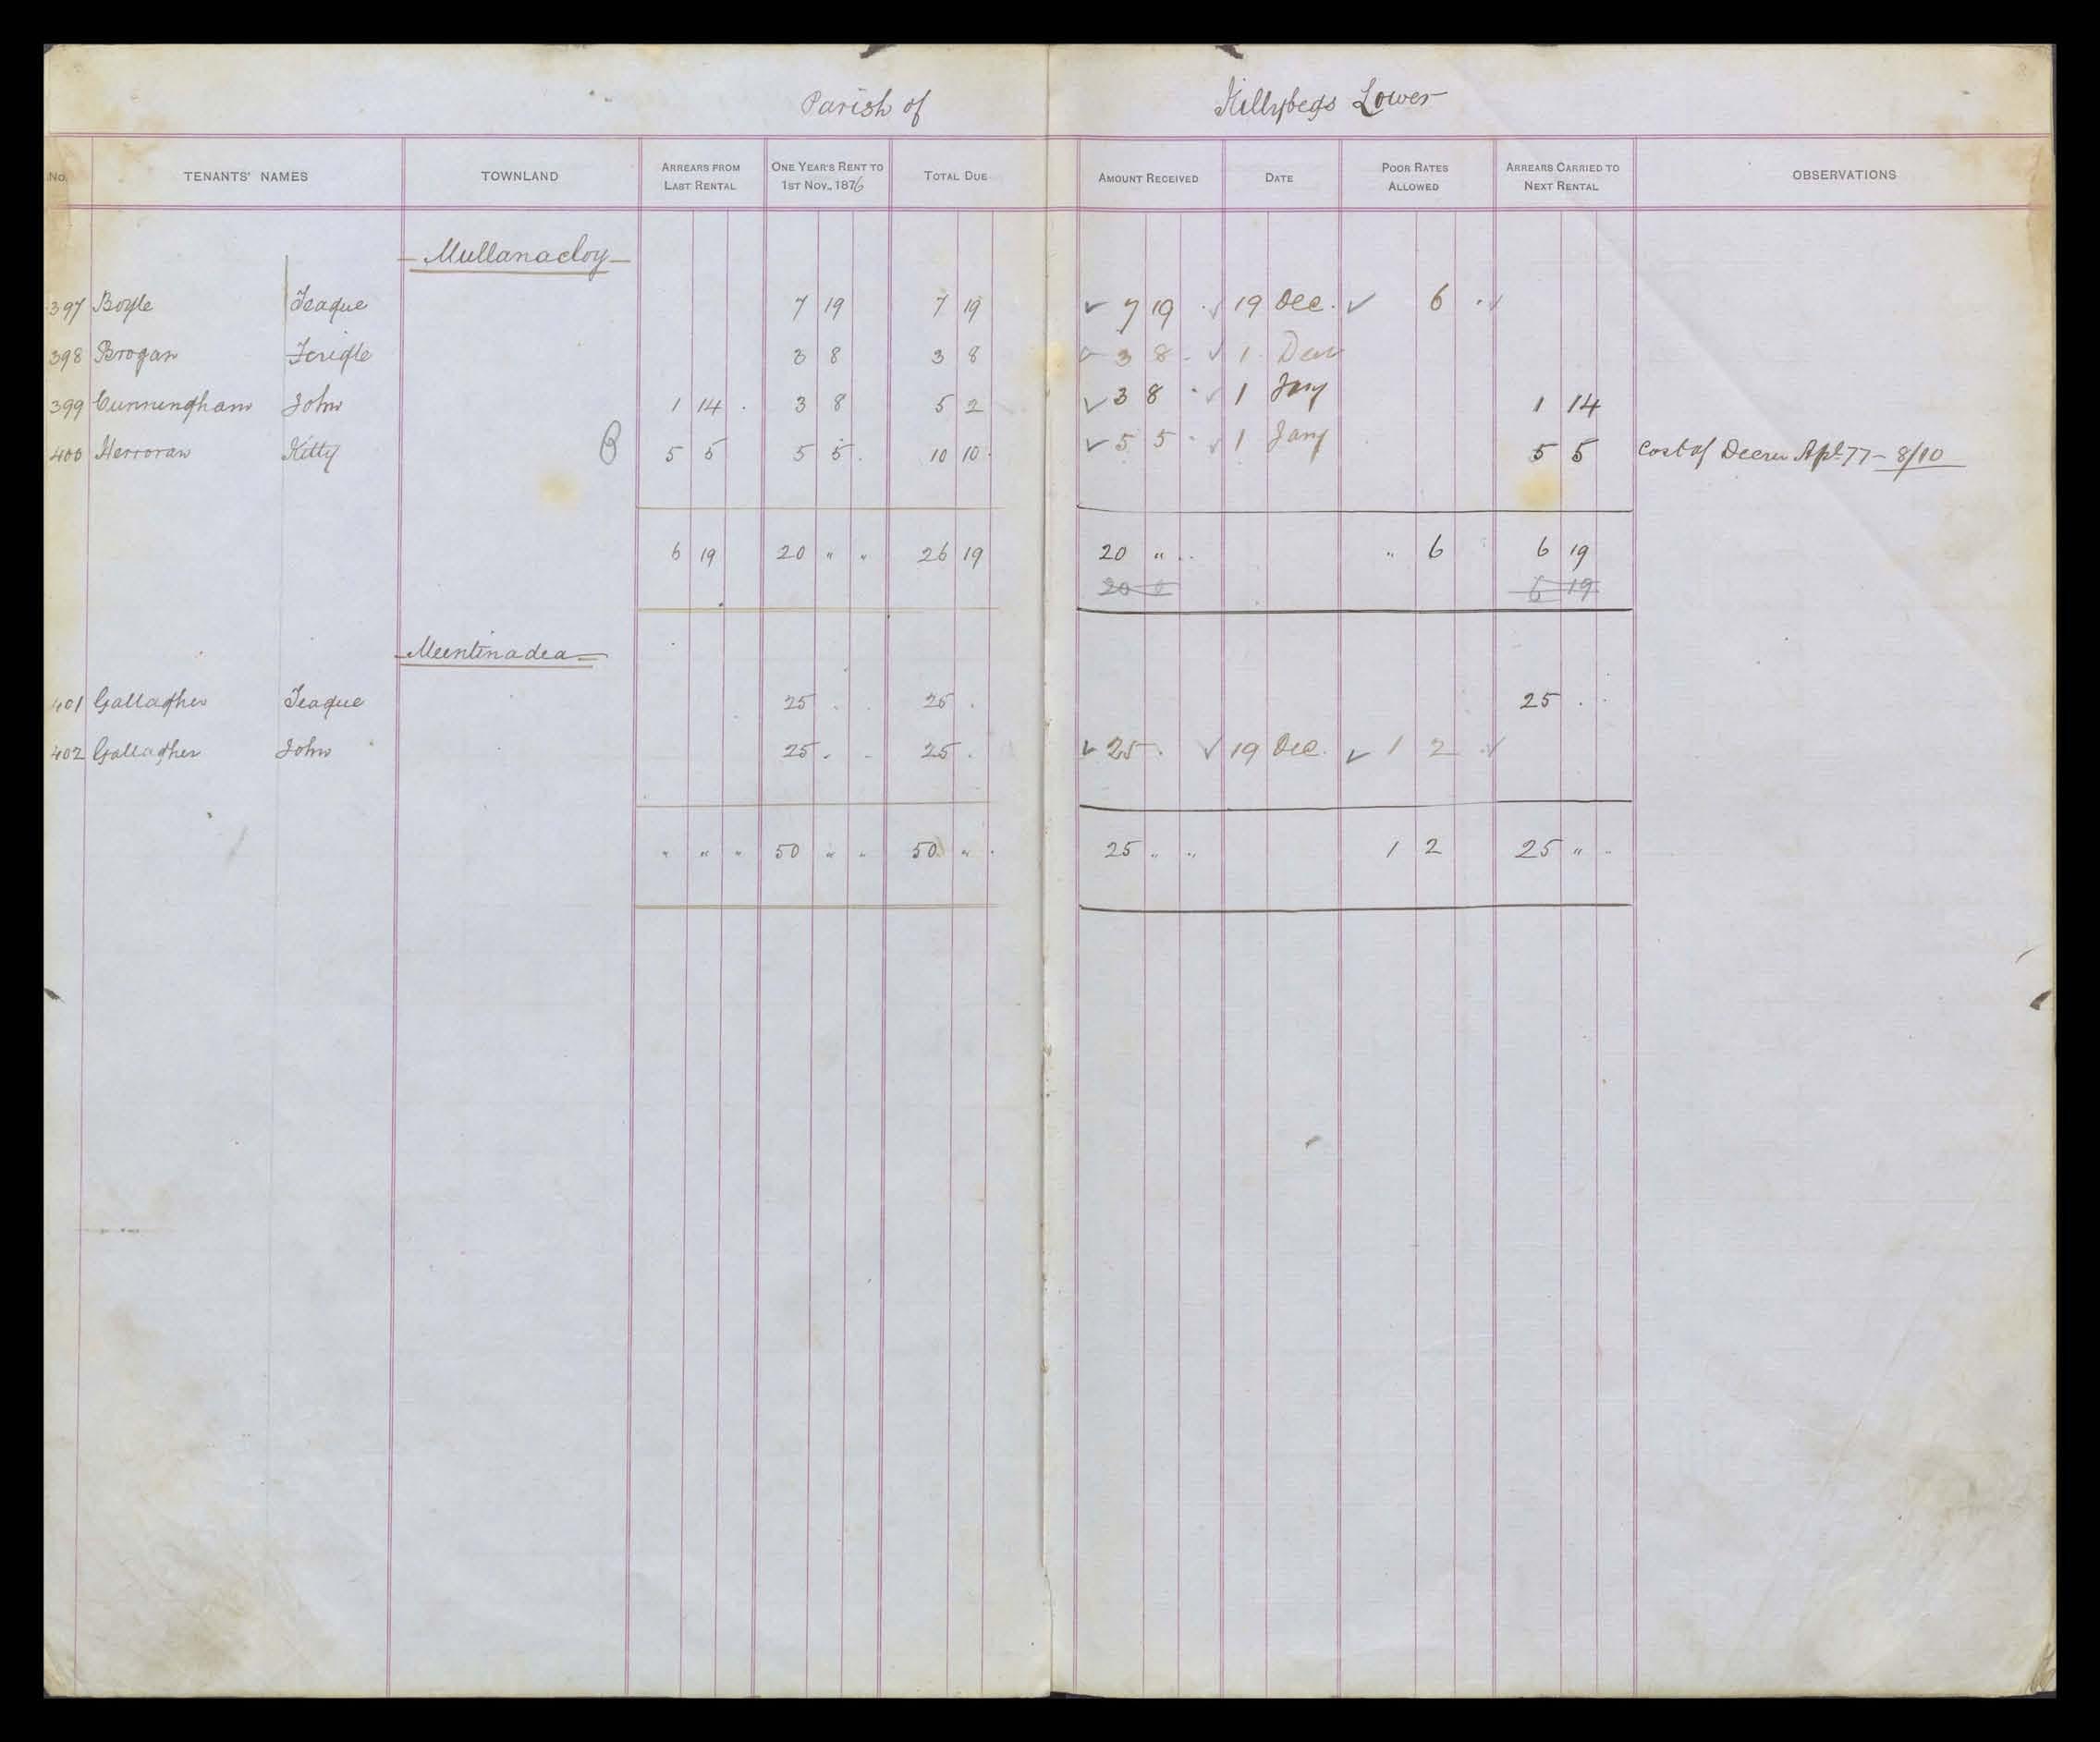 Parish of Killybegs Lower
No. TENANTS' NAMES TOWNLAND ARREARS FROM LAST RENTAL ONE YEAR'S RENT TO 1ST NOV., 1876 TOTAL DUE AMOUNT RECEIVED DATE POOR RATES ALLOWED ARREARS CARRIED TO NEXT RENTAL OBSERVATIONS
Mullanacloy
397 Boyle Teague 7 19 7 19 ✓ 7 19 . ✓ 19 Dec. ✓ 6 . ✓
398 Brogan Ferigle 3 8 3 8 3 8 . ✓ 1 Decr
399 Cunningham John 1 14 . 3 8 5 2 ✓ 3 8 . ✓ 1 Jany 1 14
400 Herroran Kitty B 5 5 5 5 . 10 10 . ✓ 5 5 . ✓ 1 Jany 5 5 Cost of Decree Apl 77 - 8/10
6 19 20 " " 26 19 20 " .. " 6 6 19
6 19
Meentinadea
401 Gallagher Teague 25 . . 25 . 25 . .
402 Gallagher John 25 . . 25 . ✓ 25 . ✓ 19 Dec. ✓ 1 2 . ✓
" " " 50 " " 50 " . 25 " " 1 2 25 " "